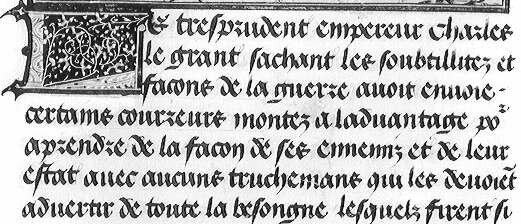 Le tresprudent empereur Charles
le grant sachant les soubtillitez et
facons de la guerre auoit enuoie
certains coureurs montez a laduantage po᷑
aprendre de la facon de ses ennemiz et de leur
estat auec aucuns truchemans qui les deuoiẽt
aduertir de toute la besongne lesquelz firent si